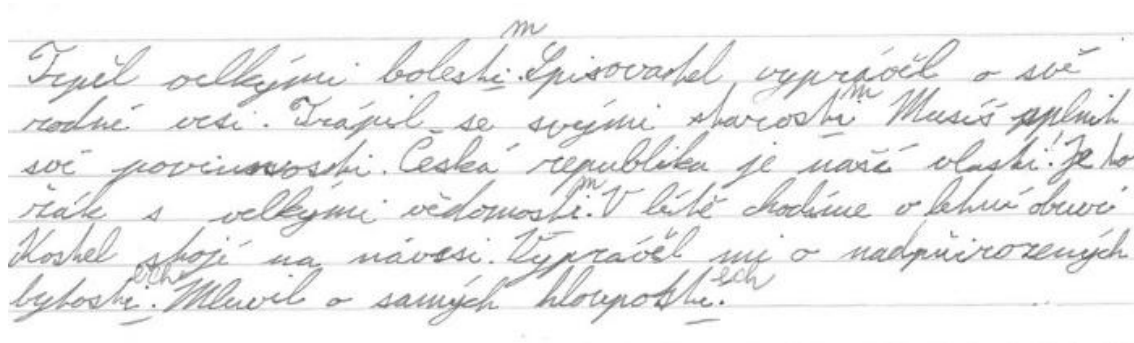 Trpěl velkými bolesti.m Spisovatel vyprávěl o své
rodné vsi. Trápil se svými starosti m Musíš splnit
své povinnosti. Česká republika je naší vlastí! Je to
žák s velkými vědomosti.m V létě chodíme v lehuí obuvi
Kostel stojí na návsi. Vyprávěl mi o nadpřirozených
bytosti.ech Mluvil o samých hlouposti.ech